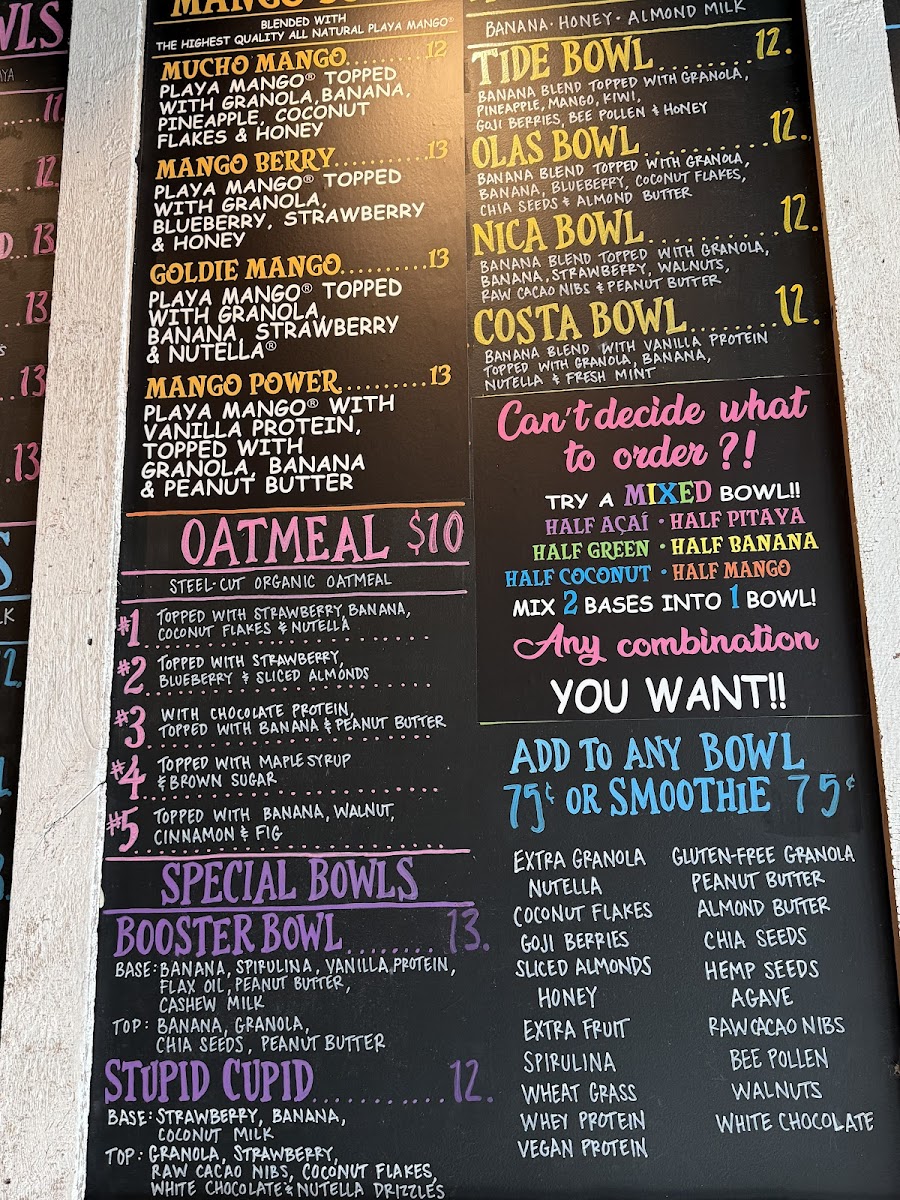 WLS
11
12
13
13
13
.13
BLENDED WITH
THE HIGHEST QUALITY ALL NATURAL PLAYA MANGO®
MUCHO MANGO..........12
PLAYA MANGO® TOPPED
WITH GRANOLA, BANANA,
PINEAPPLE, COCONUT
FLAKES & HONEY
MANGO BERRY..........13
PLAYA MANGO® TOPPED
WITH GRANOLA,
BLUEBERRY, STRAWBERRY
& HONEY
GOLDIE MANGO..........13
PLAYA MANGO® TOPPED
WITH GRANOLA,
BANANA, STRAWBERRY
& NUTELLA®
MANGO POWER.........13
PLAYA MANGO® WITH
VANILLA PROTEIN,
TOPPED WITH
GRANOLA, BANANA
& PEANUT BUTTER
OATMEAL $10
STEEL-CUT ORGANIC OATMEAL
#1 TOPPED WITH STRAWBERRY, BANANA,
COCONUT FLAKES & NUTELLA
#2 TOPPED WITH STRAWBERRY,
BLUEBERRY & SLICED ALMONDS
#3 WITH CHOCOLATE PROTEIN,
TOPPED WITH BANANA & PEANUT BUTTER
#4 TOPPED WITH MAPLE SYRUP
& BROWN SUGAR
#5 TOPPED WITH BANANA, WALNUT,
CINNAMON & FIG
SPECIAL BOWLS
BOOSTER BOWL........13.
BASE: BANANA, SPIRULINA, VANILLA PROTEIN,
FLAX OIL, PEANUT BUTTER,
CASHEW MILK
TOP: BANANA, GRANOLA,
CHIA SEEDS, PEANUT BUTTER
STUPID CUPID............12.
BASE: STRAWBERRY, BANANA,
COCONUT MILK
TOP: GRANOLA, STRAWBERRY,
RAW CACAO NIBS, COCONUT FLAKES,
WHITE CHOCOLATE & NUTELLA DRIZZLES
BANANA · HONEY · ALMOND MILK
TIDE BOWL.......12.
BANANA BLEND TOPPED WITH GRANOLA,
PINEAPPLE, MANGO, KIWI,
GOJI BERRIES, BEE POLLEN & HONEY
OLAS BOWL........12.
BANANA BLEND TOPPED WITH GRANOLA,
BANANA, BLUEBERRY, COCONUT FLAKES,
CHIA SEEDS & ALMOND BUTTER
NICA BOWL........12.
BANANA BLEND TOPPED WITH GRANOLA,
BANANA, STRAWBERRY, WALNUTS,
RAW CACAO NIBS & PEANUT BUTTER
COSTA BOWL.......12.
BANANA BLEND WITH VANILLA PROTEIN
TOPPED WITH GRANOLA, BANANA,
NUTELLA & FRESH MINT
Can't decide what
to order?!
TRY A MIXED BOWL!!
HALF AÇAÍ · HALF PITAYA
HALF GREEN · HALF BANANA
HALF COCONUT · HALF MANGO
MIX 2 BASES INTO 1 BOWL!
Any combination
YOU WANT!!
ADD TO ANY BOWL
75¢ OR SMOOTHIE 75¢
EXTRA GRANOLA GLUTEN-FREE GRANOLA
NUTELLA PEANUT BUTTER
COCONUT FLAKES ALMOND BUTTER
GOJI BERRIES CHIA SEEDS
SLICED ALMONDS HEMP SEEDS
HONEY AGAVE
EXTRA FRUIT RAW CACAO NIBS
SPIRULINA BEE POLLEN
WHEAT GRASS WALNUTS
WHEY PROTEIN WHITE CHOCOLATE
VEGAN PROTEIN